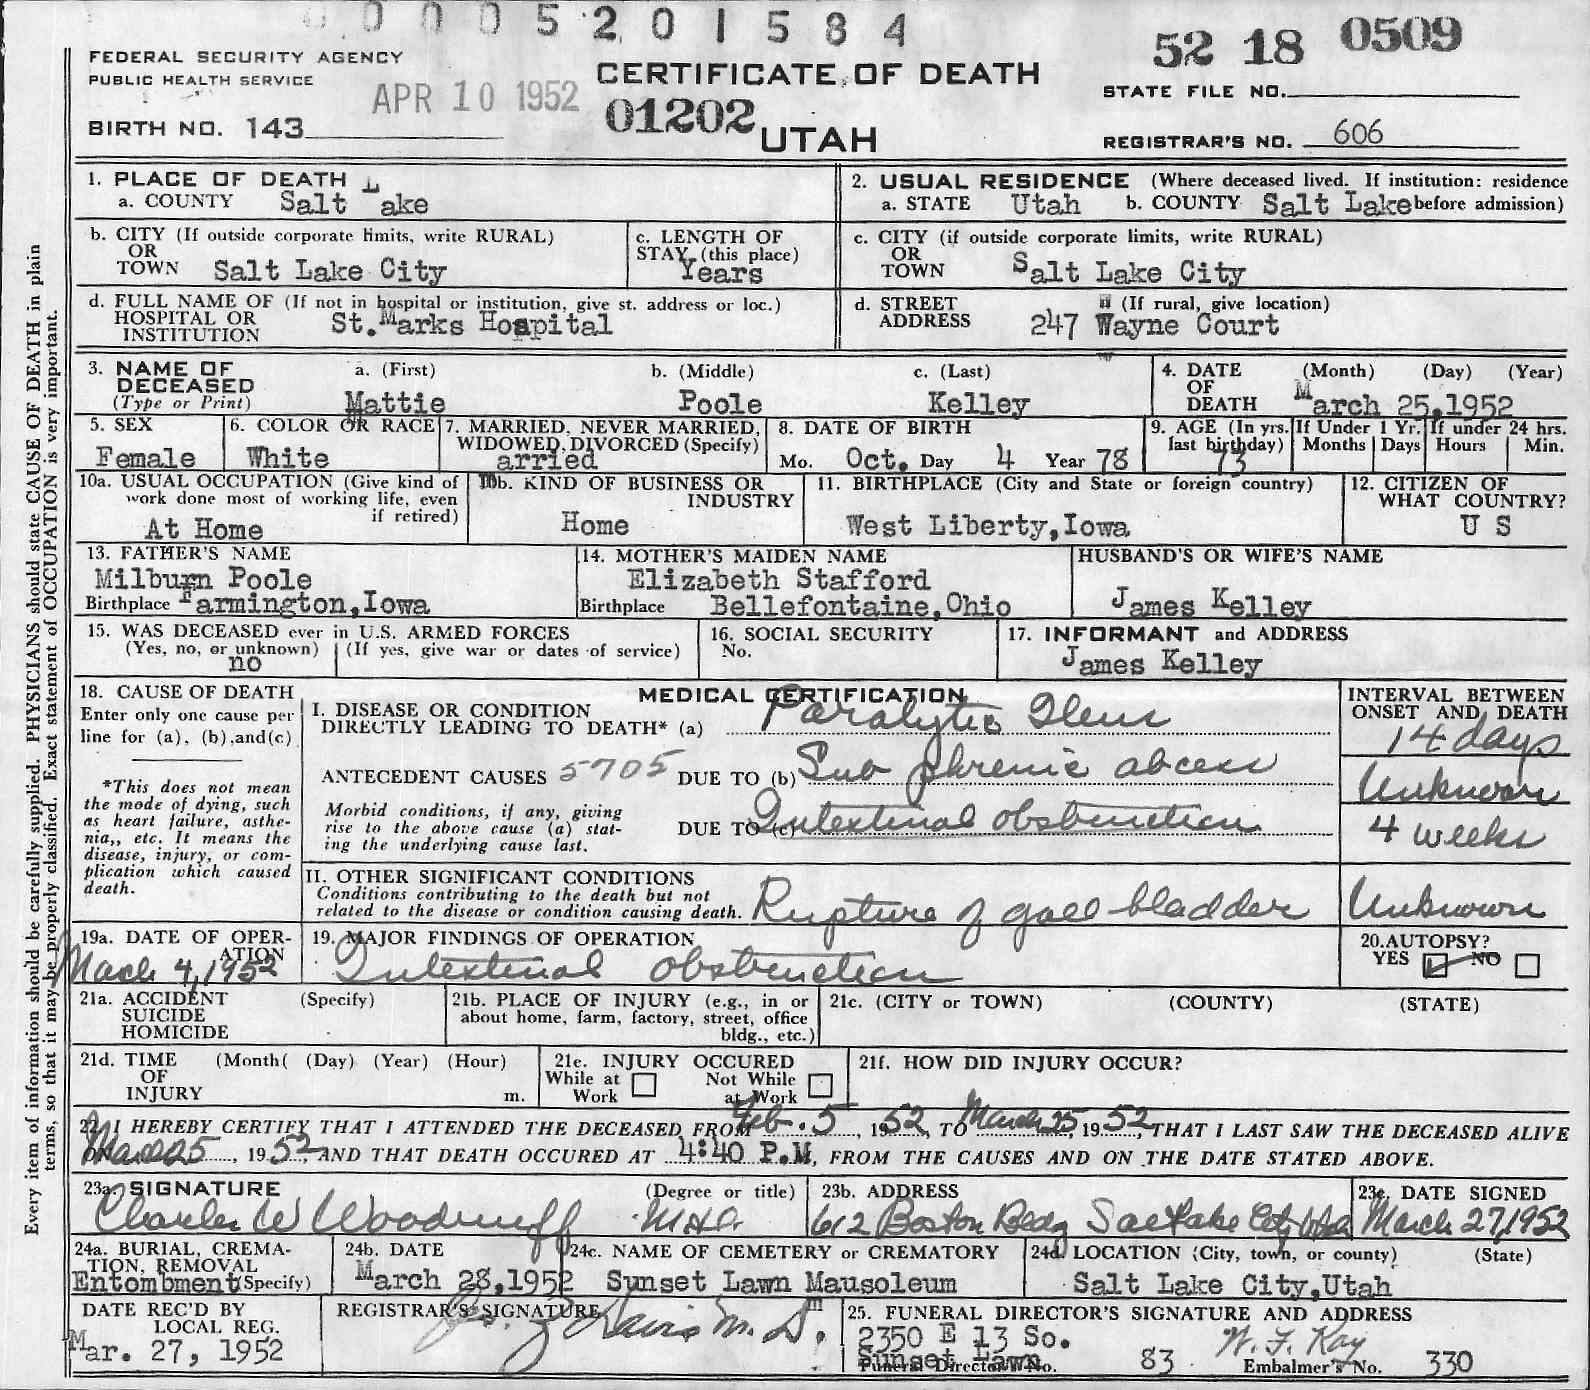 0 0 0 5 2 0 1 5 8 4
52 18 0509
FEDERAL SECURITY AGENCY
PUBLIC HEALTH SERVICE
APR 10 1952
CERTIFICATE OF DEATH
STATE FILE NO.
BIRTH NO. 143
01202
UTAH
REGISTRAR'S NO. 606
Every item of information should be carefully supplied. PHYSICIANS should state CAUSE OF DEATH in plain
terms, so that it may be properly classified. Exact statement of OCCUPATION is very important.
1. PLACE OF DEATH
a. COUNTY Salt Lake
2. USUAL RESIDENCE (Where deceased lived. If institution: residence
a. STATE Utah b. COUNTY Salt Lake before admission)
b. CITY (If outside corporate limits, write RURAL)
OR
TOWN Salt Lake City
c. LENGTH OF
STAY (this place)
Years
c. CITY (if outside corporate limits, write RURAL)
OR
TOWN Salt Lake City
d. FULL NAME OF (If not in hospital or institution, give st. address or loc.)
HOSPITAL OR
INSTITUTION St. Marks Hospital
d. STREET (If rural, give location)
ADDRESS 247 Wayne Court
3. NAME OF
DECEASED
(Type or Print)
a. (First) b. (Middle) c. (Last)
Mattie Poole Kelley
4. DATE (Month) (Day) (Year)
OF
DEATH March 25,1952
5. SEX
Female
6. COLOR OR RACE
White
7. MARRIED, NEVER MARRIED,
WIDOWED, DIVORCED (Specify)
Married
8. DATE OF BIRTH
Mo. Oct. Day 4 Year 78
9. AGE (In yrs.
last birthday)
73
If Under 1 Yr.
Months Days
If under 24 hrs.
Hours Min.
10a. USUAL OCCUPATION (Give kind of
work done most of working life, even
if retired)
At Home
10b. KIND OF BUSINESS OR
INDUSTRY
Home
11. BIRTHPLACE (City and State or foreign country)
West Liberty, Iowa
12. CITIZEN OF
WHAT COUNTRY?
U S
13. FATHER'S NAME
Milburn Poole
Birthplace Farmington, Iowa
14. MOTHER'S MAIDEN NAME
Elizabeth Stafford
Birthplace Bellefontaine, Ohio
HUSBAND'S OR WIFE'S NAME
James Kelley
15. WAS DECEASED ever in U.S. ARMED FORCES
(Yes, no, or unknown) (If yes, give war or dates of service)
no
16. SOCIAL SECURITY
No.
17. INFORMANT and ADDRESS
James Kelley
18. CAUSE OF DEATH
Enter only one cause per
line for (a), (b), and (c)
*This does not mean
the mode of dying, such
as heart failure, asthe-
nia,, etc. It means the
disease, injury, or com-
plication which caused
death.
MEDICAL CERTIFICATION
I. DISEASE OR CONDITION
DIRECTLY LEADING TO DEATH* (a) Paralytic Ileus
ANTECEDENT CAUSES 5705 DUE TO (b) Sub phrenic abcess
Morbid conditions, if any, giving
rise to the above cause (a) stat-
ing the underlying cause last.
DUE TO (c) Intestinal obstruction
INTERVAL BETWEEN
ONSET AND DEATH
14 days
Unknown
4 weeks
II. OTHER SIGNIFICANT CONDITIONS
Conditions contributing to the death but not
related to the disease or condition causing death. Rupture of gall bladder
Unknown
19a. DATE OF OPER-
ATION
March 4, 1952
19. MAJOR FINDINGS OF OPERATION
Intestinal obstruction
20. AUTOPSY?
YES NO
21a. ACCIDENT (Specify)
SUICIDE
HOMICIDE
21b. PLACE OF INJURY (e.g., in or
about home, farm, factory, street, office
bldg., etc.)
21c. (CITY or TOWN) (COUNTY) (STATE)
21d. TIME (Month( (Day) (Year) (Hour)
OF
INJURY m.
21e. INJURY OCCURED
While at Not While
Work at Work
21f. HOW DID INJURY OCCUR?
22. I HEREBY CERTIFY THAT I ATTENDED THE DECEASED FROM Feb. 5, 1952, TO March 25, 1952, THAT I LAST SAW THE DECEASED ALIVE
March 25, 1952 AND THAT DEATH OCCURED AT 4:40 P.M, FROM THE CAUSES AND ON THE DATE STATED ABOVE.
23a. SIGNATURE (Degree or title)
Charles W Woodruff M.D.
23b. ADDRESS
612 Boston Bldg Salt Lake City Utah
23c. DATE SIGNED
March 27, 1952
24a. BURIAL, CREMA-
TION, REMOVAL
Entombment (Specify)
24b. DATE
March 28,1952
24c. NAME OF CEMETERY or CREMATORY
Sunset Lawn Mausoleum
24d. LOCATION (City, town, or county) (State)
Salt Lake City, Utah
DATE REC'D BY
LOCAL REG.
Mar. 27, 1952
REGISTRAR'S SIGNATURE
Davis M.D.
25. FUNERAL DIRECTOR'S SIGNATURE AND ADDRESS
2350 E 13 So.
W. F. Kay
Sunset Lawn
Funeral Director's No. 83 Embalmer's No. 330